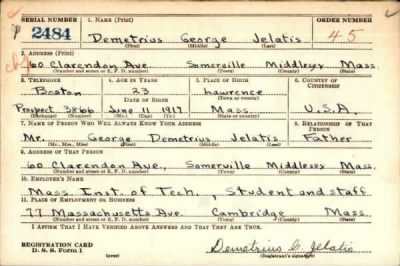 SERIAL NUMBER 1. NAME (Print) ORDER NUMBER
2484 Demetrius George Jelatis 45
(First) (Middle) (Last)
2. ADDRESS (Print)
60 Clarendon Ave. Somerville Middlesex Mass.
(Number and street or R. F. D. number) (Town) (County) (State)
3. TELEPHONE 4. AGE IN YEARS 5. PLACE OF BIRTH 6. COUNTRY OF CITIZENSHIP
Boston 23 Lawrence
DATE OF BIRTH (Town or county)
Prospect 3866 June 11 1917 Mass. U.S.A.
(Exchange) (Number) (Mo.) (Day) (Yr.) (State or country)
7. NAME OF PERSON WHO WILL ALWAYS KNOW YOUR ADDRESS 8. RELATIONSHIP OF THAT PERSON
Mr. George Demetrius Jelatis Father
(Mr., Mrs., Miss) (First) (Middle) (Last)
9. ADDRESS OF THAT PERSON
60 Clarendon Ave., Somerville Middlesex Mass.
(Number and street or R. F. D. number) (Town) (County) (State)
10. EMPLOYER'S NAME
Mass. Inst. of Tech., Student and staff
11. PLACE OF EMPLOYMENT OR BUSINESS
77 Massachusetts Ave. Cambridge Mass.
(Number and street or R. F. D. number) (Town) (County) (State)
I AFFIRM THAT I HAVE VERIFIED ABOVE ANSWERS AND THAT THEY ARE TRUE.
REGISTRATION CARD
D. S. S. Form 1 (over) Demetrius G. Jelatis
(Registrant's signature)